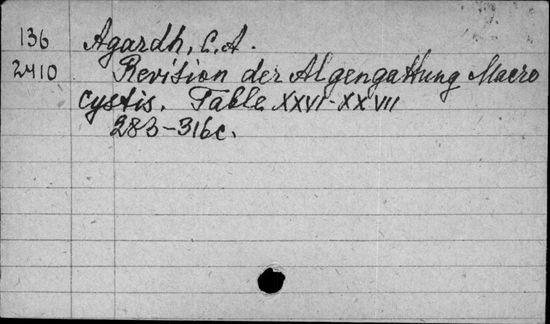 136 Agardh, C. A.
2410 Revision der Algengattung Macro
cystis. Table XXVI-XXVIII
283-316c.